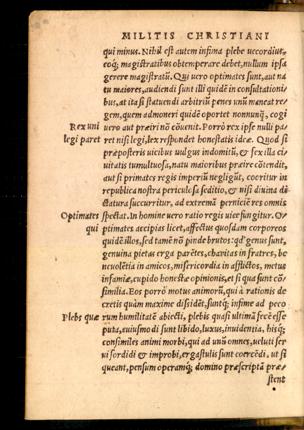 MILITIS CHRISTIANI
qui minus. Nihil est autem infima plebe uecordius,
eoq; magistratibus obtemperare debet, nullum ipsa
gerere magistratū. Qui uero optimates sunt, aut na
tu maiores, audiendi sunt illi quidē in consultationi
bus, at ita si statuendi arbitriū penes unū maneat re
gem, quem admoneri quidē oportet nonnunq̄, cogi
Rex uni uero aut præiri nō cōuenit. Porrò rex ipse nulli pa
legi paret ret nisi legi, lex respondet honestatis ideæ. Quod si
præposteris uicibus uulgus indomitū, & fex illa ci
uitatis tumultuosa, natu maioribus præire cōtendit,
aut si primates regis imperiū negligūt, cooritur in
republica nostra periculosa seditio, & nisi diuina di
ctatura succurritur, ad extremā perniciē res omnis
Optimates spectat. In homine uero ratio regis uice fungitur. O
ptimates accipias licet, affectus quosdam corporeos
quidē illos, sed tamē nō pinde brutos: qd' genus sunt,
genuina pietas erga parētes, charitas in fratres, be
neuolētia in amicos, misericordia in afflictos, metus
infamiæ, cupido honestæ opinionis, et si qua sunt cō
similia. Eos porrò motus animorū, qui à rationis de
cretis quàm maxime dissidēt, suntq; infime ad peco
Plebs quæ rum humilitatē abiecti, plebis quasi ultimā fecē esse
puta, cuiusmodi sunt libido, luxus, inuidentia, hisq;
consimiles animi morbi, qui ad unū omnes, ueluti ser
ui sordidi & improbi, ergastulis sunt coercēdi, ut si
queant, pensum operamq; domino præscriptā præ-
stent